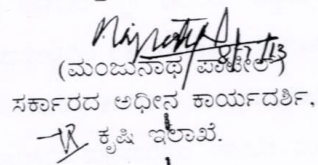 8/7/13
(ಮಂಜುನಾಥ ಪಾಟೀಲ್)
ಸರ್ಕಾರದ ಅಧೀನ ಕಾರ್ಯದರ್ಶಿ,
ಕೃಷಿ ಇಲಾಖೆ.